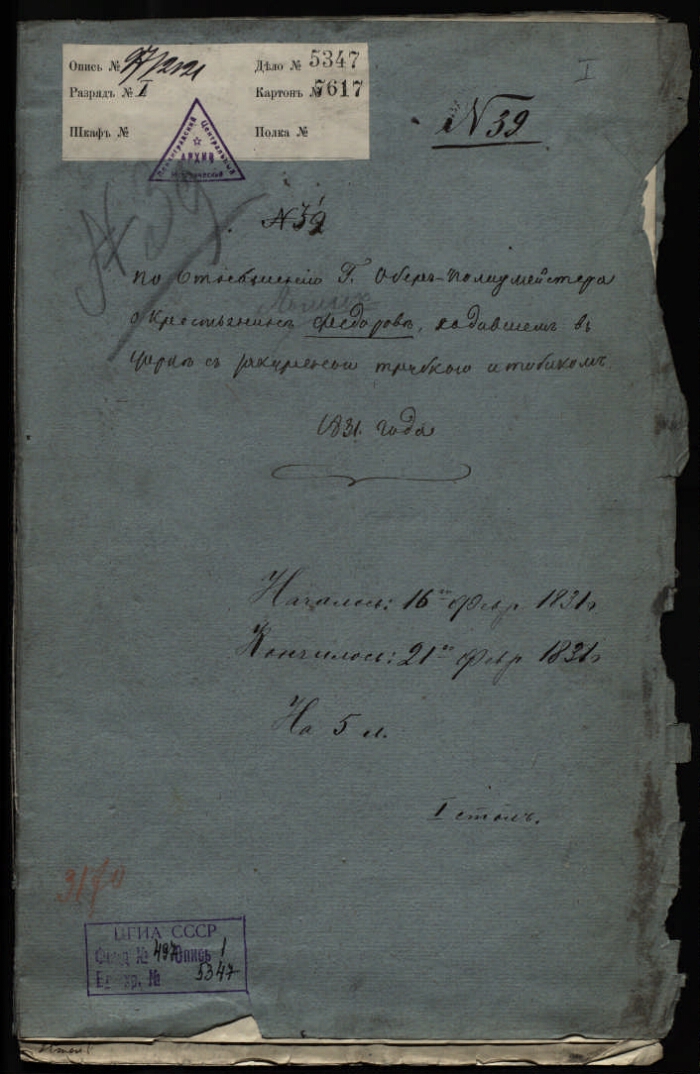 Опись № 97/2121
Дѣло № 5347
Разрядъ № I
Картонъ № 5617
Шкафъ №
Полка №
Ленинградский Центральный
АРХИВ
Исторический
I
№ 39
№ 39
№ 39
По Отношенію Г. Оберъ-Полицмейстера
о Крестьянинѣ Федоровѣ, ходившемъ въ
Церкв съ закуренной трубкою и табакомъ
1831. года
Началось: 16го Февр 1831 г
Кончилось: 21го Февр 1831 г
На 5 л.
I столъ.
ЦГИА СССР
Фонд № 497 Опись 1
Ед. хр. № 5347